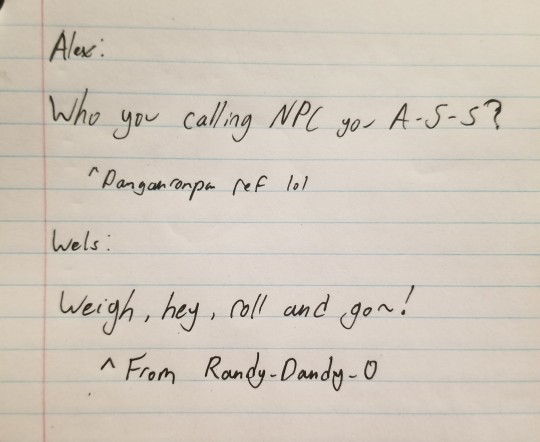 Alex:
Who you calling NPC you A-S-S?
^Danganronpa ref lol
Wels:
Weigh, hey, roll and go~!
^ From Randy-Dandy-O